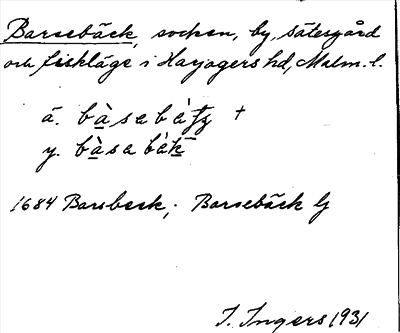 Barsebäck, socken, by, sätesgård
och fiskläge i Harjagers hd, Malm. l.
ä. bàsabèʃʒ +
y. bàsabèk
1684 Barsbeck; Barsebäck G
I. Ingers 1931